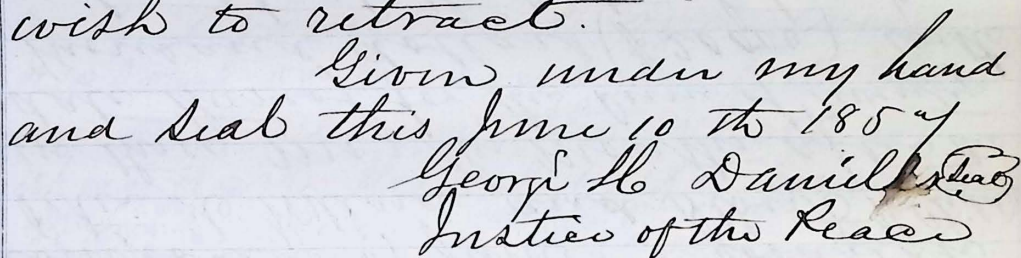 wish to retract.
Given under my hand
and seal this June 10 th 1857
George H Daniels Seal
Justice of the Peace